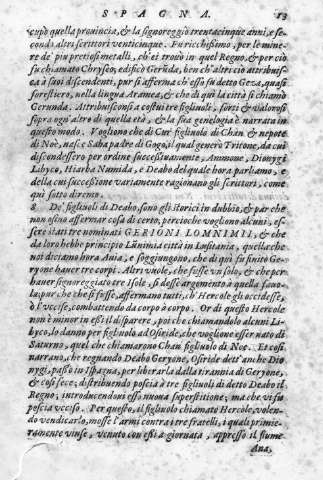 SPAGNA. 13
cupò quella prouincia, & la signoreggiò trentacinque anni, e se-
condo altri scrittori venticinque. Fu ricchissimo, per le minie-
re de' piu pretiosi metalli, ch'ei trouò in quel Regno, & per ciò
fu chiamato Chryseo; edificò Gerũda, ben ch'altri ciò attribuis-
ca a i suoi discendenti, pur si afferma ch'esso fu detto Geza, quasi
forestiero, nella lingua Aramea, & che di quì la città si chiamò
Gerunda. Attribuisconsi a costui tre figliuoli, forti & valorosi
sopra ogn'altro di quella età, & la sua genelogia è narrata in
questo modo. Vogliono che di Cur figliuolo di Chàm & nepote
di Noè, nasce Saba padre di Gogo, il qual generò Tritone, da cui
discendessero per ordine successiuamente, Ammone, Dionygi
Libyco, Hiarba Numida, e Deabo del quale hora parliamo, e
della cui successione variamente ragionano gli scrittori, come
qui sotto diremo.
8 De' figliuoli di Deabo, sono gli storici in dubbio, & par che
non osino affermar cosa di certo, percioche vogliono alcuni, es-
sere stati tre nominati GERIONI LOMNIMII, & che
da loro hebbe principio Lũnimia città in Lusitania, quella che
noi diciamo hora Auia, e soggiungono, che di quì fu finito Ge-
ryone hauer tre corpi. Altri vuole, che fusse vn solo, & che per
hauer signoreggiato tre Isole, si desse argomento a quella fauo-
la: pur che che si fusse, affermano tutti, ch'Hercole gli occidesse,
ò l'vccise, combattendo da corpo à corpo. Or di questo Hercole
non è minor in essi il disparere, poi che chiamandolo alcuni Li-
byco, lo danno per figliuolo ad Osiride, che vogliono esser nato di
Saturno, quel che chiamarono Cham figliuolo di Noè. Et così
narrano, che regnando Deabo Geryone, Osiride dett'anche Dio-
nygi, passò in Ispagna, per liberarla dalla tirannia di Geryone,
& così fece; distribuendo poscia à tre figliuoli di detto Deabo il
Regno; introducendoui esso nuoua superstitione; ma che vi fù
poscia vcciso. Per questo, il figliuolo chiamato Hercole, volen-
do vendicarlo, mosse l'armi contra i tre fratelli, i quali primie-
ramente vinse, venuto con essi a giornata, appresso il fiume
Ana,